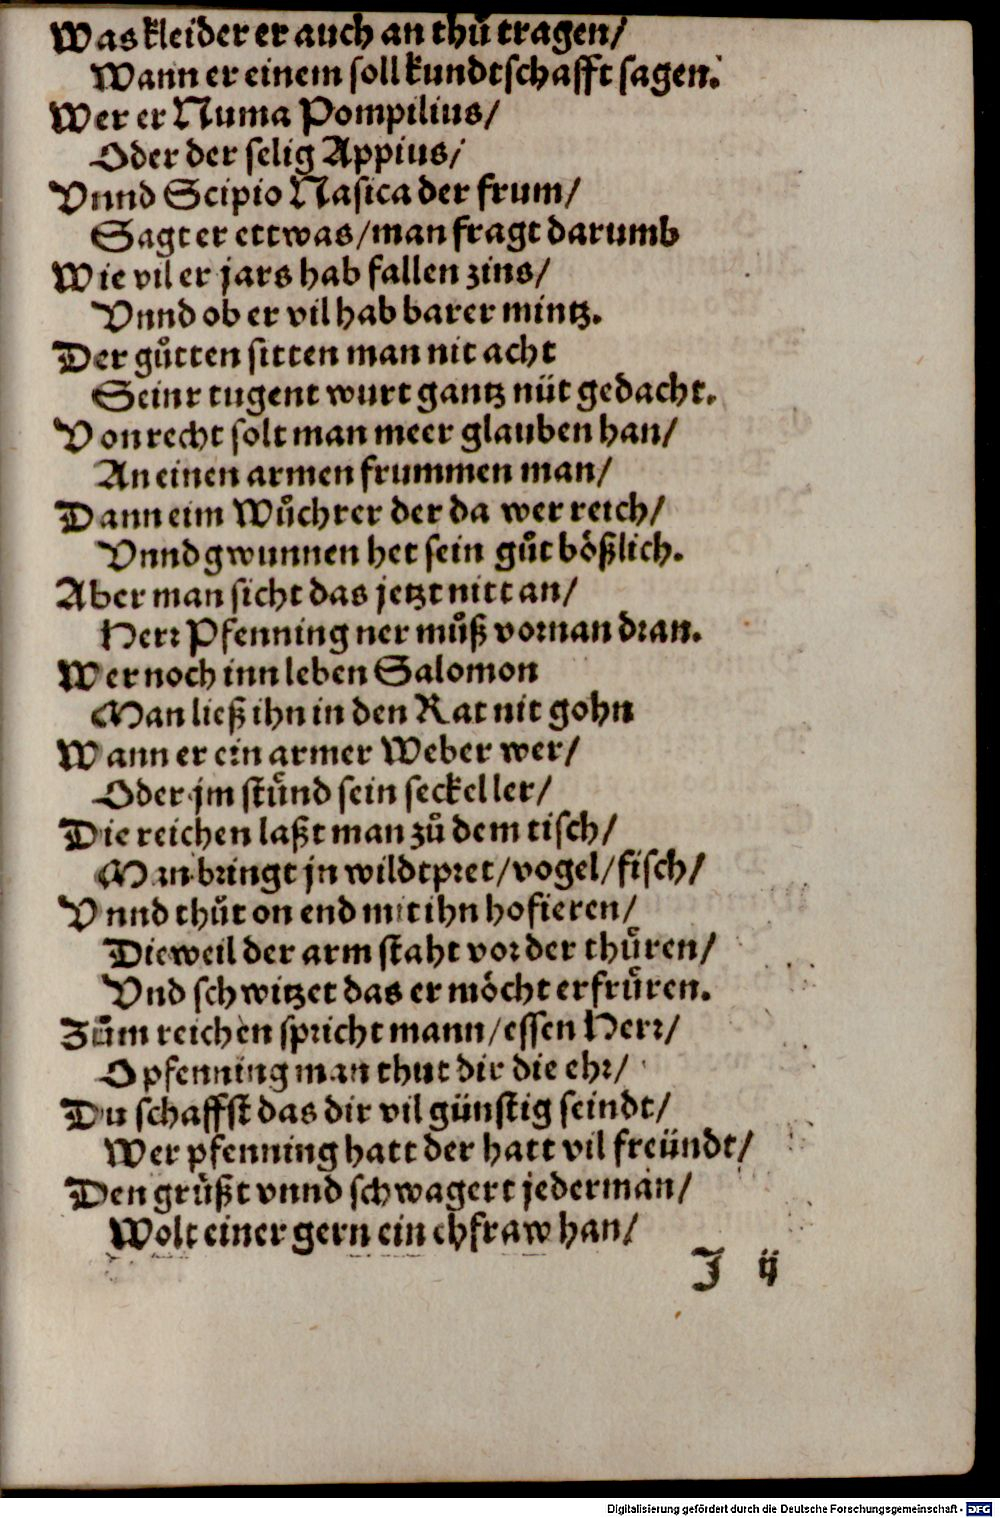 Was kleider er auch an thuͦ tragen/
Wann er einem soll kundtschafft sagen.
Wer er Numa Pompilius/
Oder der selig Appius/
Vnnd Scipio Nasica der frum/
Sagt er ettwas/man fragt darumb
Wie vil er jars hab fallen zins/
Vnnd ob er vil hab barer mintz.
Der guͦtten sitten man nit acht
Seinr tugent wurt gantz nüt gedacht.
Von recht solt man meer glauben han/
An einen armen frummen man/
Dann eim Wuͦchrer der da wer reich/
Vnnd gwunnen het sein guͦt bößlich.
Aber man sicht das jetzt nitt an/
Herr Pfenning ner muͦß vornan dran.
Wer noch inn leben Salomon
Man ließ ihn in den Rat nit gohn
Wann er ein armer Weber wer/
Oder jm stuͦnd sein seckel ler/
Die reichen laßt man zuͦ dem tisch/
Man bringt jn wildtpret/vogel/fisch/
Vnnd thuͦt on end mit ihn hofieren/
Dieweil der arm staht vor der thüren/
Vnd schwitzet das er möcht erfrüren.
Zuͦm reichen spricht mann/essen Herr/
O pfenning man thut dir die ehr/
Du schaffst das dir vil günstig seindt/
Wer pfenning hatt der hatt vil freündt/
Den grüßt vnnd schwagert jederman/
Wolt einer gern ein ehfraw han/
J ij
Digitalisierung gefördert durch die Deutsche Forschungsgemeinschaft - DFG